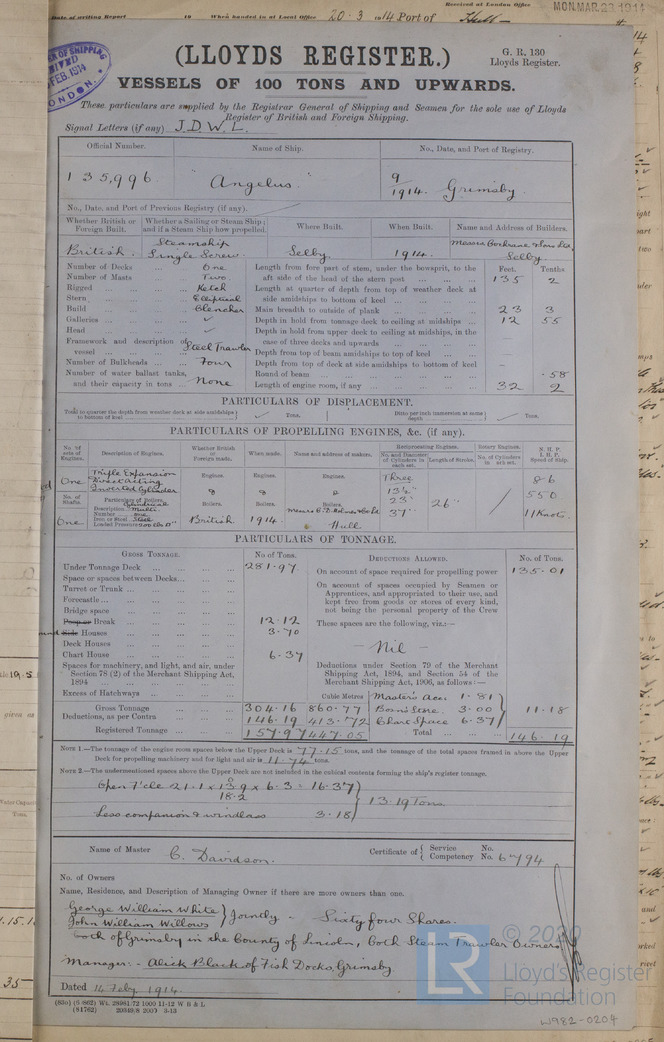 Date of writing Report 19 When handed in at Local Office 20·3 1914 Port of Hull
Received at London Office MON. MAR. 23 1914
(LLOYDS REGISTER.)
G. R. 130
Lloyds Register.
VESSELS OF 100 TONS AND UPWARDS.
FEB. 1914
LONDON.
These particulars are supplied by the Registrar General of Shipping and Seamen for the sole use of Lloyds
Register of British and Foreign Shipping.
Signal Letters (if any) J.D.W.L.
Official Number. Name of Ship. No., Date, and Port of Registry.
135,996 "Angelus" 9/1914. Grimsby.
No., Date, and Port of Previous Registry (if any).
Whether British or Foreign Built. Whether a Sailing or Steam Ship; and if a Steam Ship how propelled. Where Built. When Built. Name and Address of Builders.
British. Steamship Single Screw. Selby. 1914. Messrs Cochrane & Sons Ltd Selby.
Number of Decks One
Number of Masts Two.
Rigged Ketch
Stern Elliptical
Build Clencher
Galleries
Head
Framework and description of vessel Steel Trawler
Number of Bulkheads Four
Number of water ballast tanks, and their capacity in tons None
Feet. Tenths
Length from fore part of stem, under the bowsprit, to the
aft side of the head of the stern post 135 2
Length at quarter of depth from top of weather deck at
side amidships to bottom of keel
Main breadth to outside of plank 23 3
Depth in hold from tonnage deck to ceiling at midships 12 55
Depth in hold from upper deck to ceiling at midships, in the
case of three decks and upwards
Depth from top of beam amidships to top of keel
Depth from top of deck at side amidships to bottom of keel
Round of beam ·58
Length of engine room, if any 32 2
PARTICULARS OF DISPLACEMENT.
Total to quarter the depth from weather deck at side amidships to bottom of keel Tons. Ditto per inch immersion at same depth Tons.
PARTICULARS OF PROPELLING ENGINES, &c. (if any).
No. of sets of Engines. Description of Engines. Whether British or Foreign made. When made. Name and address of makers. Reciprocating Engines. No. and Diameter of Cylinders in each set. Length of Stroke. Rotary Engines. No. of Cylinders in each set. N. H. P. I. H. P. Speed of Ship.
One Triple Expansion Direct Acting Inverted Cylinder Engines. Engines. Engines. Three 86
No. of Shafts. Particulars of Boilers. Boilers. Boilers. Boilers. 13½" 23" 37" 26" 550
Description Cylindrical Multi.
Number one
Iron or Steel Steel
Loaded Pressure 200 lbs □"
One British 1914 Hull 11 Knots.
PARTICULARS OF TONNAGE.
GROSS TONNAGE. No. of Tons. DEDUCTIONS ALLOWED. No. of Tons.
Under Tonnage Deck 281·97
Space or spaces between Decks
Turret or Trunk
Forecastle
Bridge space
Poop or Break 12·12
Side Houses 3·70
Deck Houses
Chart House 6·37
Spaces for machinery, and light, and air, under
Section 78 (2) of the Merchant Shipping Act,
1894
Excess of Hatchways Cubic Metres
Gross Tonnage 304·16 860·77
Deductions, as per Contra 146·19 413·72
Registered Tonnage 157·97 447·05
On account of space required for propelling power 135·01
On account of spaces occupied by Seamen or
Apprentices, and appropriated to their use, and
kept free from goods or stores of every kind,
not being the personal property of the Crew
These spaces are the following, viz.:—
— Nil —
Deductions under Section 79 of the Merchant
Shipping Act, 1894, and Section 54 of the
Merchant Shipping Act, 1906, as follows:—
Master's Acc. 1·81
Bosn's Store. 3·00
Chart Space 6·37
11·18
Total 146·19
NOTE 1.—The tonnage of the engine room spaces below the Upper Deck is 77·15 tons, and the tonnage of the total spaces framed in above the Upper
Deck for propelling machinery and for light and air is 11·74 tons.
NOTE 2.—The undermentioned spaces above the Upper Deck are not included in the cubical contents forming the ship's register tonnage.
Open F'cle 21·1 x 13·9 x 6·3 = 16·37
18·2
Less companion & windlass 3·18
13·19 Tons.
Name of Master C. Davidson. Certificate of Service No. Competency No. 6794
No. of Owners
Name, Residence, and Description of Managing Owner if there are more owners than one.
George William White
John William Willows
Jointly - Sixty four Shares.
both of Grimsby in the County of Lincoln, both Steam Trawler Owners
Manager:- Alick Black of Fish Docks, Grimsby
Dated 14 Feby. 1914.
© 2020
LR Lloyd's Register
Foundation
W982-0204